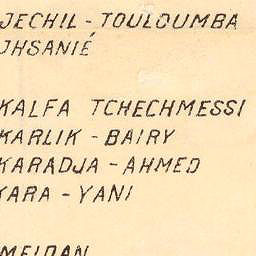 JECHIL - TOULOUMBA
JHSANIÉ
KALFA TCHECHMESSI
KARLIK - BAIRY
KARADJA - AHMED
KARA - YANI
MEIDAN